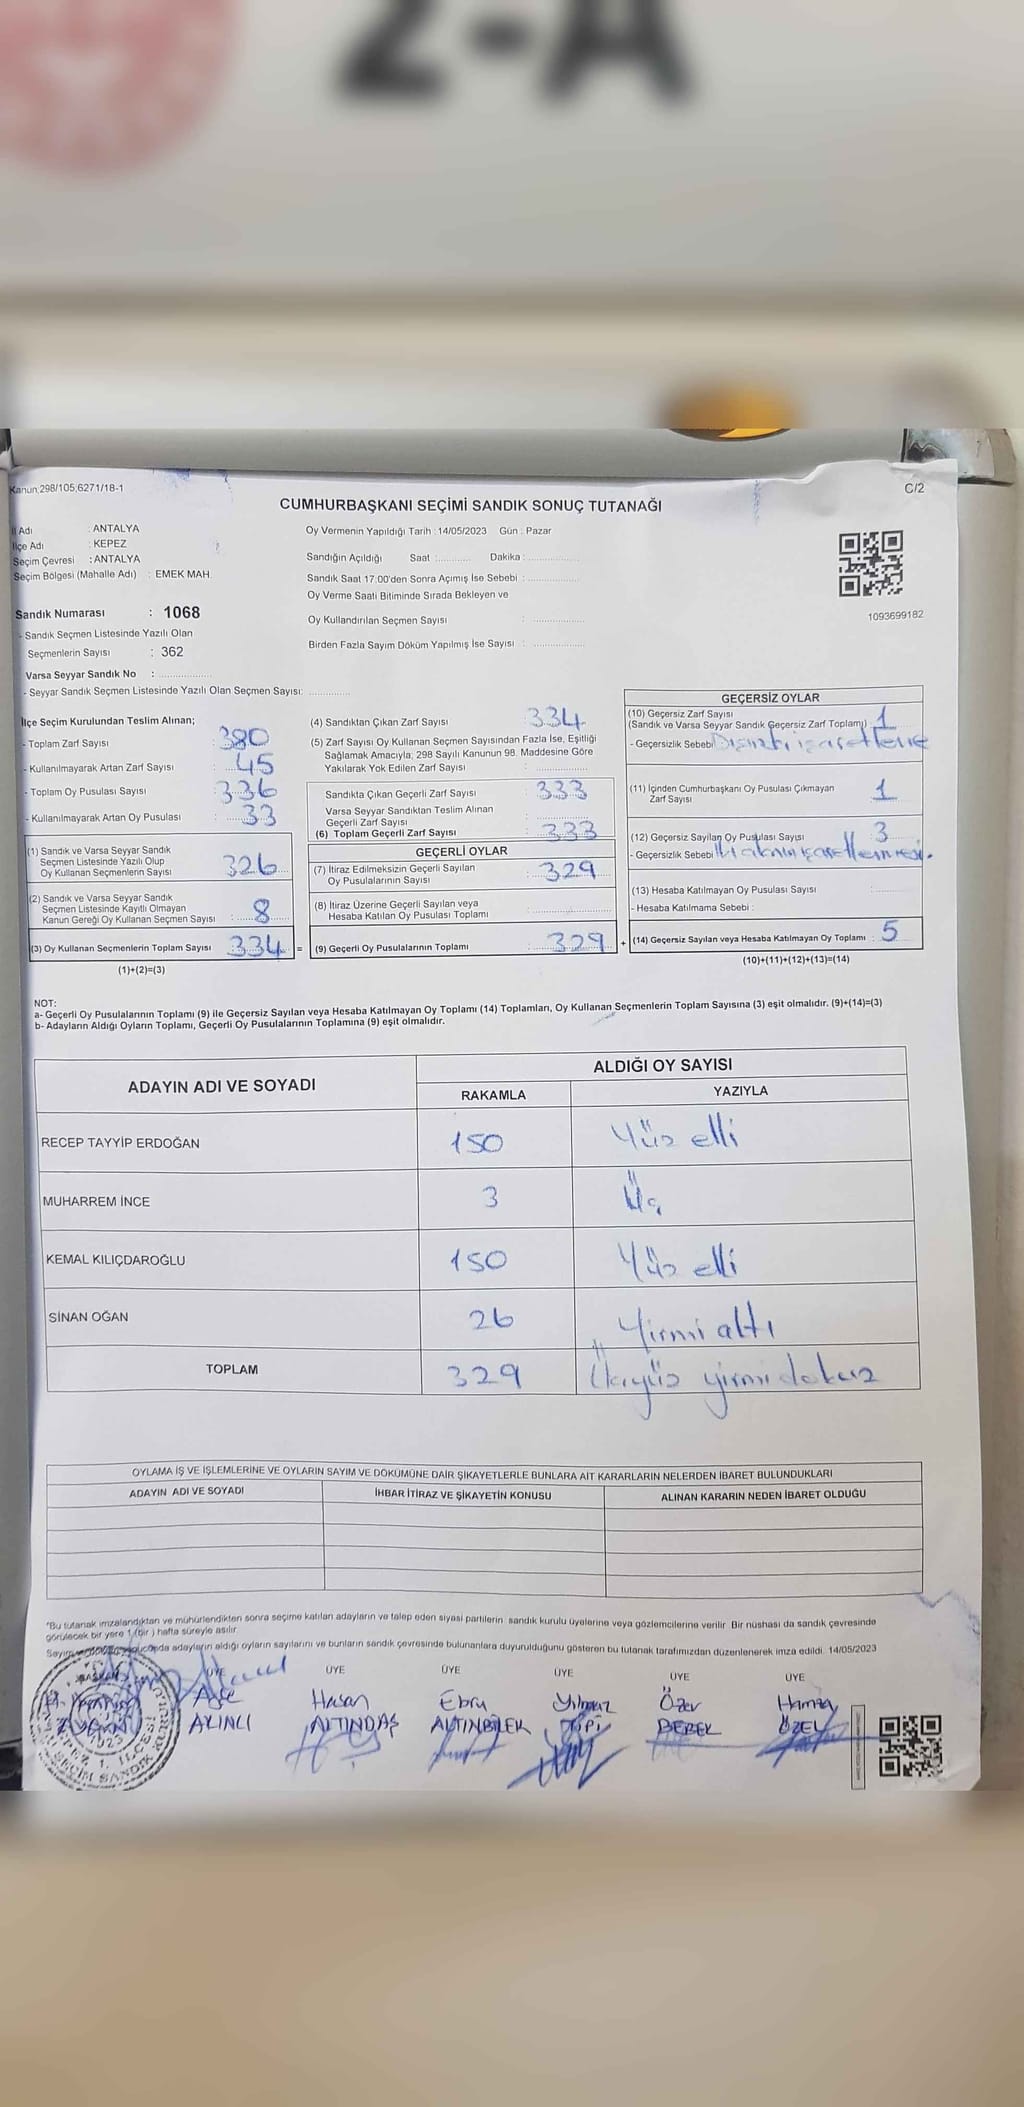 2-A
Kanun;298/105;6271/18-1
C/2
CUMHURBAŞKANI SEÇİMİ SANDIK SONUÇ TUTANAĞI
İl Adı : ANTALYA
İlçe Adı : KEPEZ
Seçim Çevresi : ANTALYA
Seçim Bölgesi (Mahalle Adı) : EMEK MAH.
Sandık Numarası : 1068
- Sandık Seçmen Listesinde Yazılı Olan
Seçmenlerin Sayısı : 362
Varsa Seyyar Sandık No :
- Seyyar Sandık Seçmen Listesinde Yazılı Olan Seçmen Sayısı:
Oy Vermenin Yapıldığı Tarih : 14/05/2023 Gün : Pazar
Sandığın Açıldığı Saat : Dakika :
Sandık Saat 17:00'den Sonra Açımış İse Sebebi :
Oy Verme Saati Bitiminde Sırada Bekleyen ve
Oy Kullandırılan Seçmen Sayısı :
Birden Fazla Sayım Döküm Yapılmış İse Sayısı :
1093699182
İlçe Seçim Kurulundan Teslim Alınan;
- Toplam Zarf Sayısı : 380
- Kullanılmayarak Artan Zarf Sayısı : 45
- Toplam Oy Pusulası Sayısı : 336
- Kullanılmayarak Artan Oy Pusulası : 33
(1) Sandık ve Varsa Seyyar Sandık
Seçmen Listesinde Yazılı Olup
Oy Kullanan Seçmenlerin Sayısı 326
(2) Sandık ve Varsa Seyyar Sandık
Seçmen Listesinde Kayıtlı Olmayan
Kanun Gereği Oy Kullanan Seçmen Sayısı : 8
(3) Oy Kullanan Seçmenlerin Toplam Sayısı 334 =
(1)+(2)=(3)
(4) Sandıktan Çıkan Zarf Sayısı 334
(5) Zarf Sayısı Oy Kullanan Seçmen Sayısından Fazla İse, Eşitliği
Sağlamak Amacıyla, 298 Sayılı Kanunun 98. Maddesine Göre
Yakılarak Yok Edilen Zarf Sayısı :
Sandıkta Çıkan Geçerli Zarf Sayısı : 333
Varsa Seyyar Sandıktan Teslim Alınan
Geçerli Zarf Sayısı :
(6) Toplam Geçerli Zarf Sayısı : 333
GEÇERLİ OYLAR
(7) İtiraz Edilmeksizin Geçerli Sayılan
Oy Pusulalarının Sayısı : 329
(8) İtiraz Üzerine Geçerli Sayılan veya
Hesaba Katılan Oy Pusulası Toplamı :
(9) Geçerli Oy Pusulalarının Toplamı : 329 +
GEÇERSİZ OYLAR
(10) Geçersiz Zarf Sayısı
(Sandık ve Varsa Seyyar Sandık Geçersiz Zarf Toplamı) 1
- Geçersizlik Sebebi
(11) İçinden Cumhurbaşkanı Oy Pusulası Çıkmayan
Zarf Sayısı : 1
(12) Geçersiz Sayılan Oy Pusulası Sayısı : 3
- Geçersizlik Sebebi
(13) Hesaba Katılmayan Oy Pusulası Sayısı :
- Hesaba Katılmama Sebebi :
(14) Geçersiz Sayılan veya Hesaba Katılmayan Oy Toplamı : 5
(10)+(11)+(12)+(13)=(14)
NOT:
a- Geçerli Oy Pusulalarının Toplamı (9) ile Geçersiz Sayılan veya Hesaba Katılmayan Oy Toplamı (14) Toplamları, Oy Kullanan Seçmenlerin Toplam Sayısına (3) eşit olmalıdır. (9)+(14)=(3)
b- Adayların Aldığı Oyların Toplamı, Geçerli Oy Pusulalarının Toplamına (9) eşit olmalıdır.
ADAYIN ADI VE SOYADI
ALDIĞI OY SAYISI
RAKAMLA YAZIYLA
RECEP TAYYİP ERDOĞAN 150 Yüz elli
MUHARREM İNCE 3 Üç
KEMAL KILIÇDAROĞLU 150 Yüz elli
SİNAN OĞAN 26 Yirmi altı
TOPLAM 329 Üçyüz yirmi dokuz
OYLAMA İŞ VE İŞLEMLERİNE VE OYLARIN SAYIM VE DÖKÜMÜNE DAİR ŞİKAYETLERLE BUNLARA AİT KARARLARIN NELERDEN İBARET BULUNDUKLARI
ADAYIN ADI VE SOYADI İHBAR İTİRAZ VE ŞİKAYETİN KONUSU ALINAN KARARIN NEDEN İBARET OLDUĞU
*Bu tutanak imzalandıktan ve mühürlendikten sonra seçime katılan adayların ve talep eden siyasi partilerin sandık kurulu üyelerine veya gözlemcilerine verilir. Bir nüshası da sandık çevresinde
görülecek bir yere 1 (bir ) hafta süreyle asılır.
Sayım adayların aldığı oyların sayılarını ve bunların sandık çevresinde bulunanlara duyurulduğunu gösteren bu tutanak tarafımızdan düzenlenerek imza edildi. 14/05/2023
BAŞKAN ÜYE ÜYE ÜYE ÜYE ÜYE ÜYE
Hasan Ebru Yılmaz Özer Hamza
AKINLI ALTINDAŞ ALTINBİLEK BEBEK ÖZEL